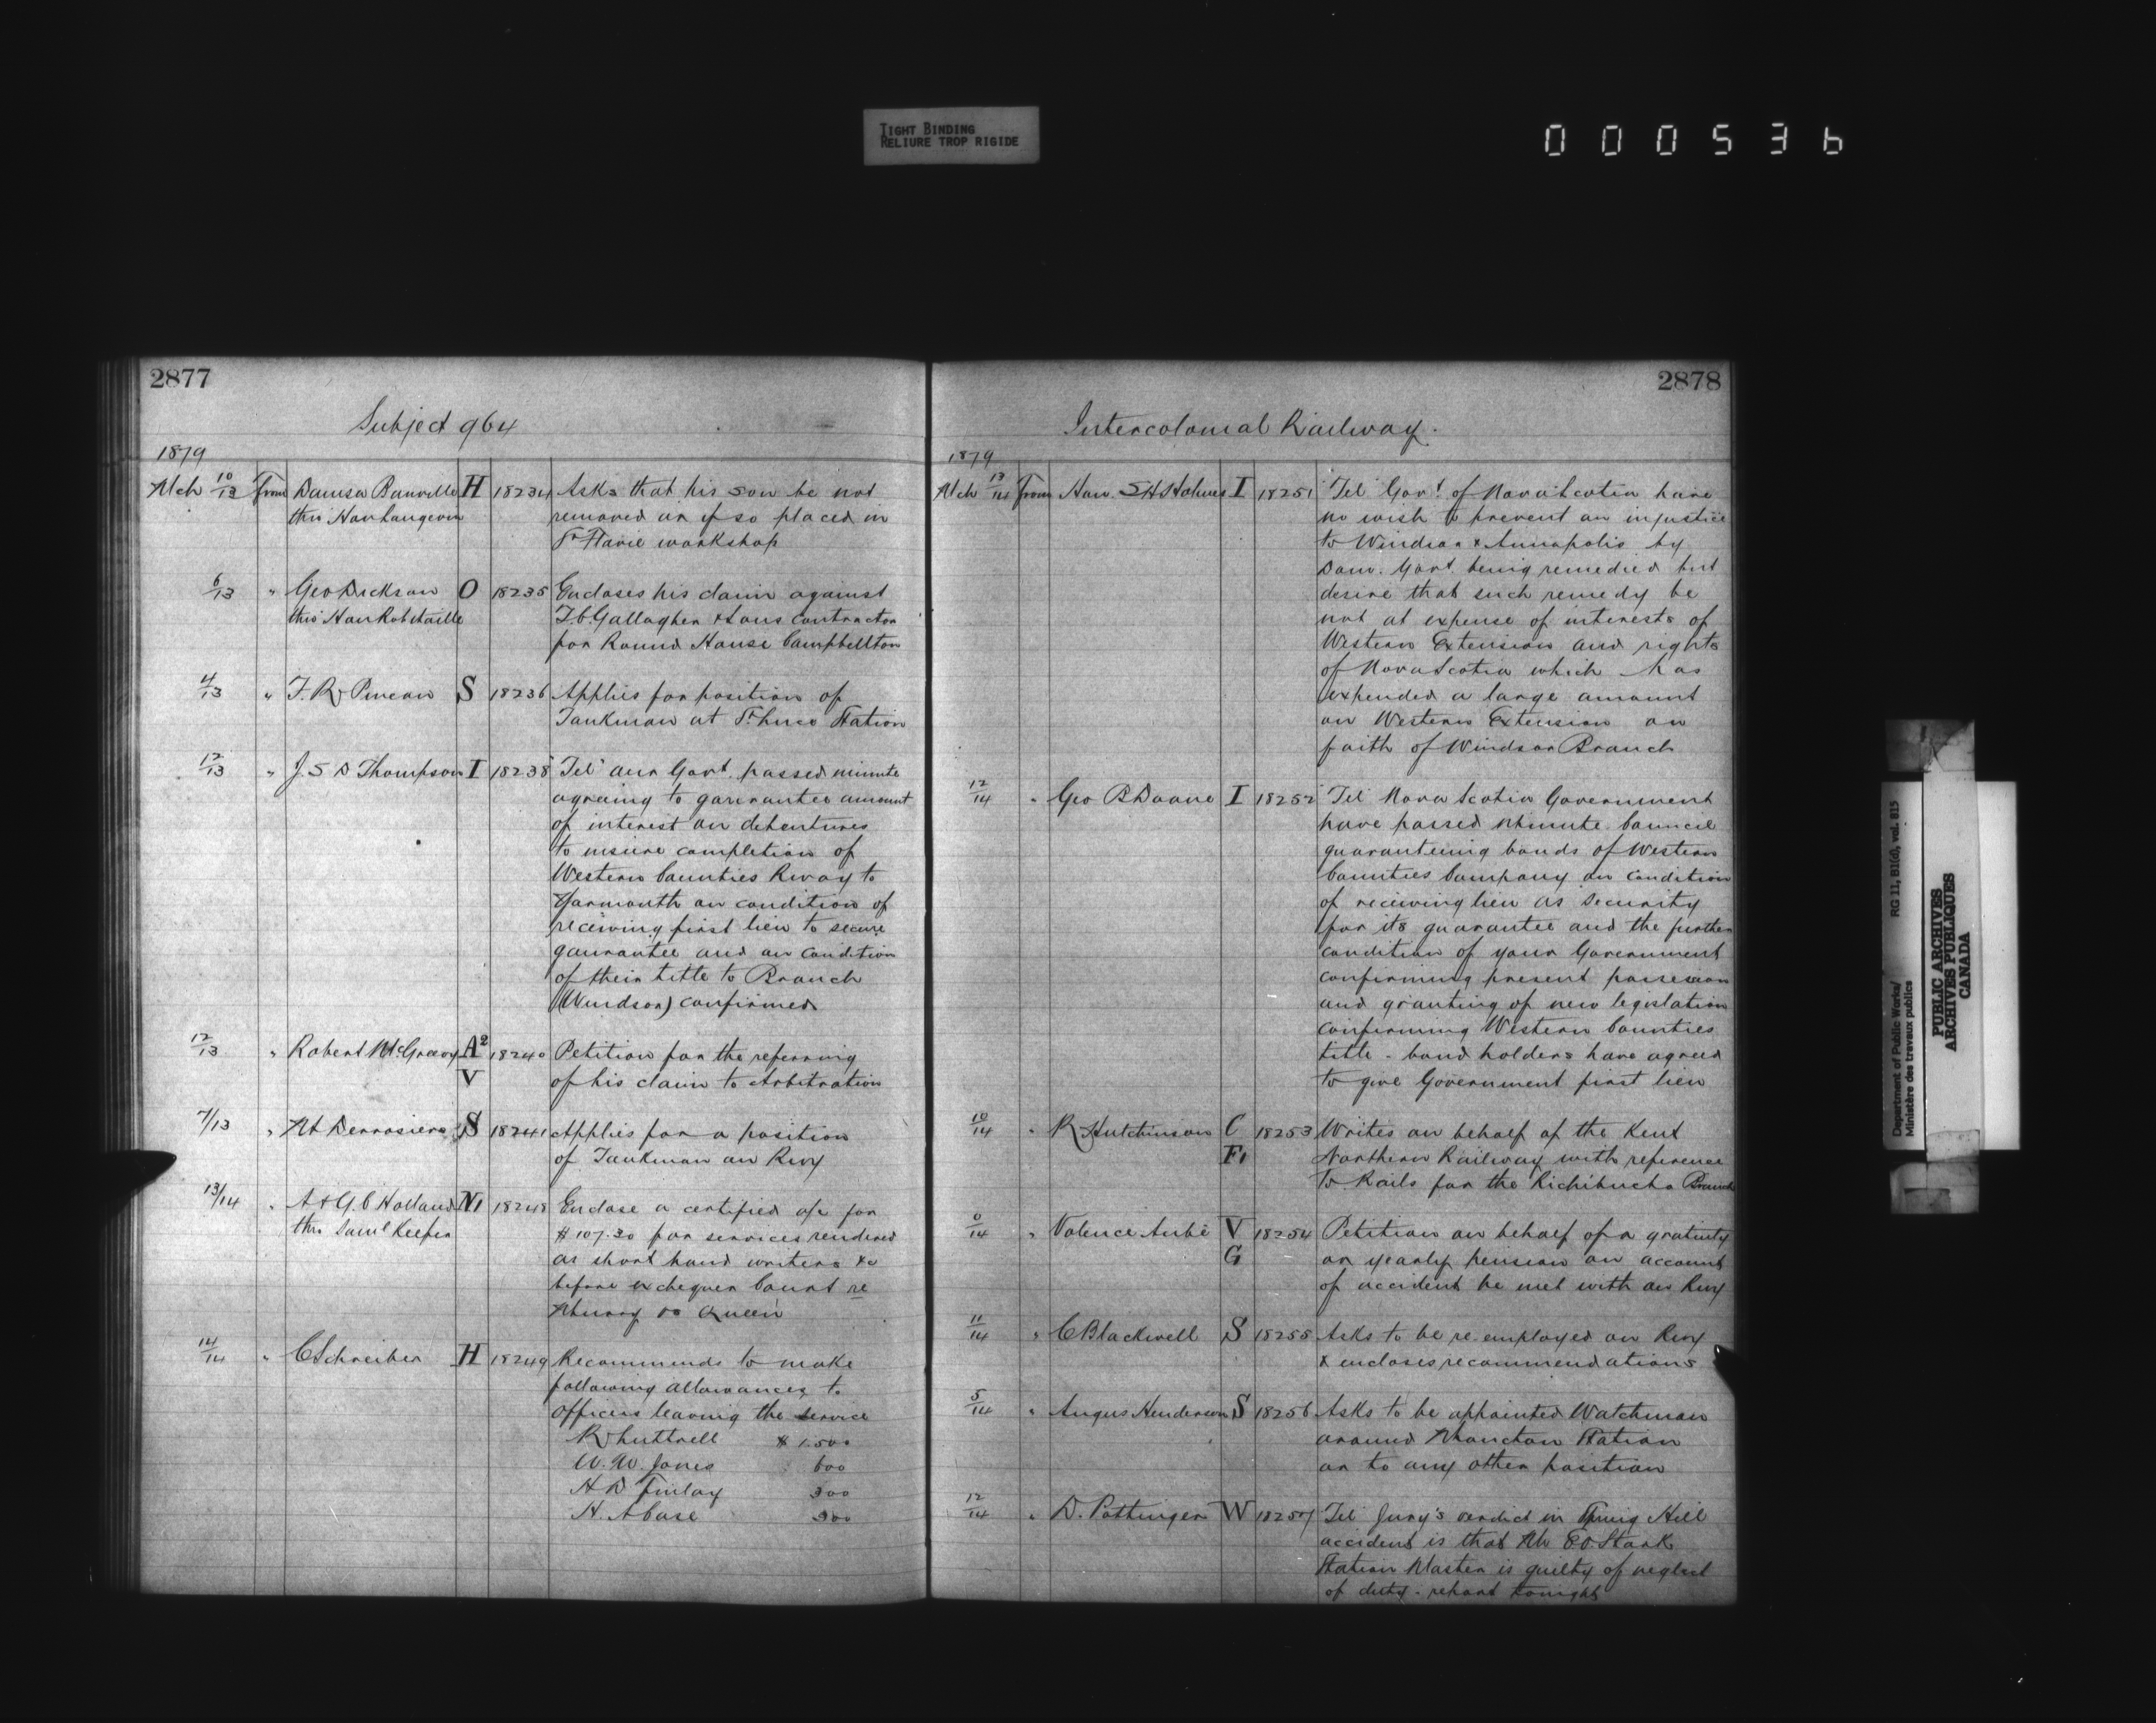 TIGHT BINDING
RELIURE TROP RIGIDE
000536
2877
Subject 964
1879
Mch 10/13 from Damsa Banville H 18234 Asks that his son be not
thro' Hon Langevin removed or if so placed in
St Flavie workshop
6/13 " Geo Dickson O 18235 Encloses his claim against
thro' Hon Robitaille T.C. Gallagher & Sons Contractor
for Round House Campbellton
4/13 " F. R. Pineau S 18236 Applies for position of
Tankman at St Luce Station
12/13 " J. S D Thompson I 18238 "Tel" our Govt. passed minute
agreeing to garrantee amount
of interest on debentures
to insure completion of
Western Counties Rway to
Yarmouth on condition of
receiving first lien to secure
gaurantee and on condition
of their title to Branch
(Windsor) confirmed
12/13 " Robert McGreevy A2 18240 Petition for the referring
V of his claim to Arbitration
7/13 " Mt Derrosiers S 18241 Applies for a position
of Tankman on Rwy
13/14 " A & G. C Holland N1 18248 Enclose a certified a/c for
thro Saml Keefer $107.30 for services rendered
as short hand writers &c
before exchequer Court re
Murray vs Queen
14/14 " C Schreiber H 18249 Recommends to make
following allowances to
Officers leaving the service
R Luttrell $1.500
W. W. Jones 600
H D Finlay 300
H. A Case 300
2878
Intercolonial Railway.
1879
Mch 13/14 from Hon. S H Holmes I 18251 "Tel" Govt. of Nova Scotia have
no wish to prevent an injustice
to Windsor & Annapolis by
Dom. Govt. being remedied but
desire that such remedy be
not at expense of interests of
Western Extension and rights
of Nova Scotia which has
expended a large amount
on Western Extension on
faith of Windsor Branch
12/14 " Geo B Doane I 18252 "Tel" Nova Scotia Government
have passed Minute Council
guaranteeing bonds of Western
Counties Company on condition
of receiving lien as security
for its guarantee and the further
condition of your Government
confirming present possession
and granting of new legislation
confirming Western Counties
title - bond holders have agreed
to give Government first lien
10/14 " R Hutchinson C 18253 Writes on behalf of the Kent
F1 Northern Railway with reference
to Rails for the Richibucto Branch
0/14 " Valence Aubé V 18254 Petition on behalf of a gratuity
G or yearly pension on account
of accident he met with on Rwy
11/14 " C Blackwell S 18255 Asks to be re-employed on Rwy
& encloses recommendations
5/14 " Angus Henderson S 18256 Asks to be appointed Watchman
around Moncton Station
or to any other position
12/14 " D. Pottinger W 18257 "Tel" Jury's verdict in Spring Hill
accident is that Mr E.O. Stark
Station Master is guilty of neglect
of duty - report tonight
Department of Public Works/ RG 11, B1(d), vol. 815
Ministère des travaux publics
PUBLIC ARCHIVES
ARCHIVES PUBLIQUES
CANADA